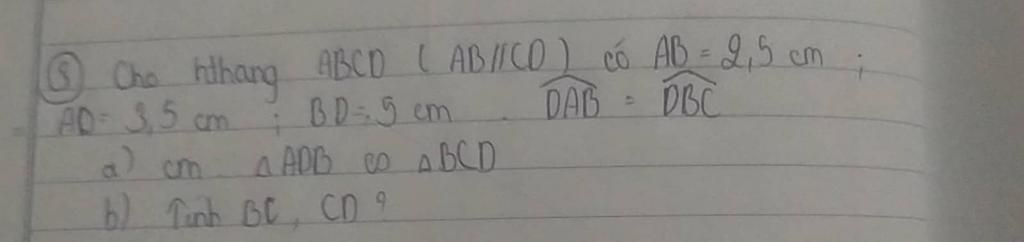 ⑧ Cho hthang ABCD ( AB//CD ) có AB = 2,5 cm ;
AD = 3,5 cm ; BD = 5 cm . DAB = DBC
a) cm △ADB ∽ △BCD
b) Tính BC, CD ?